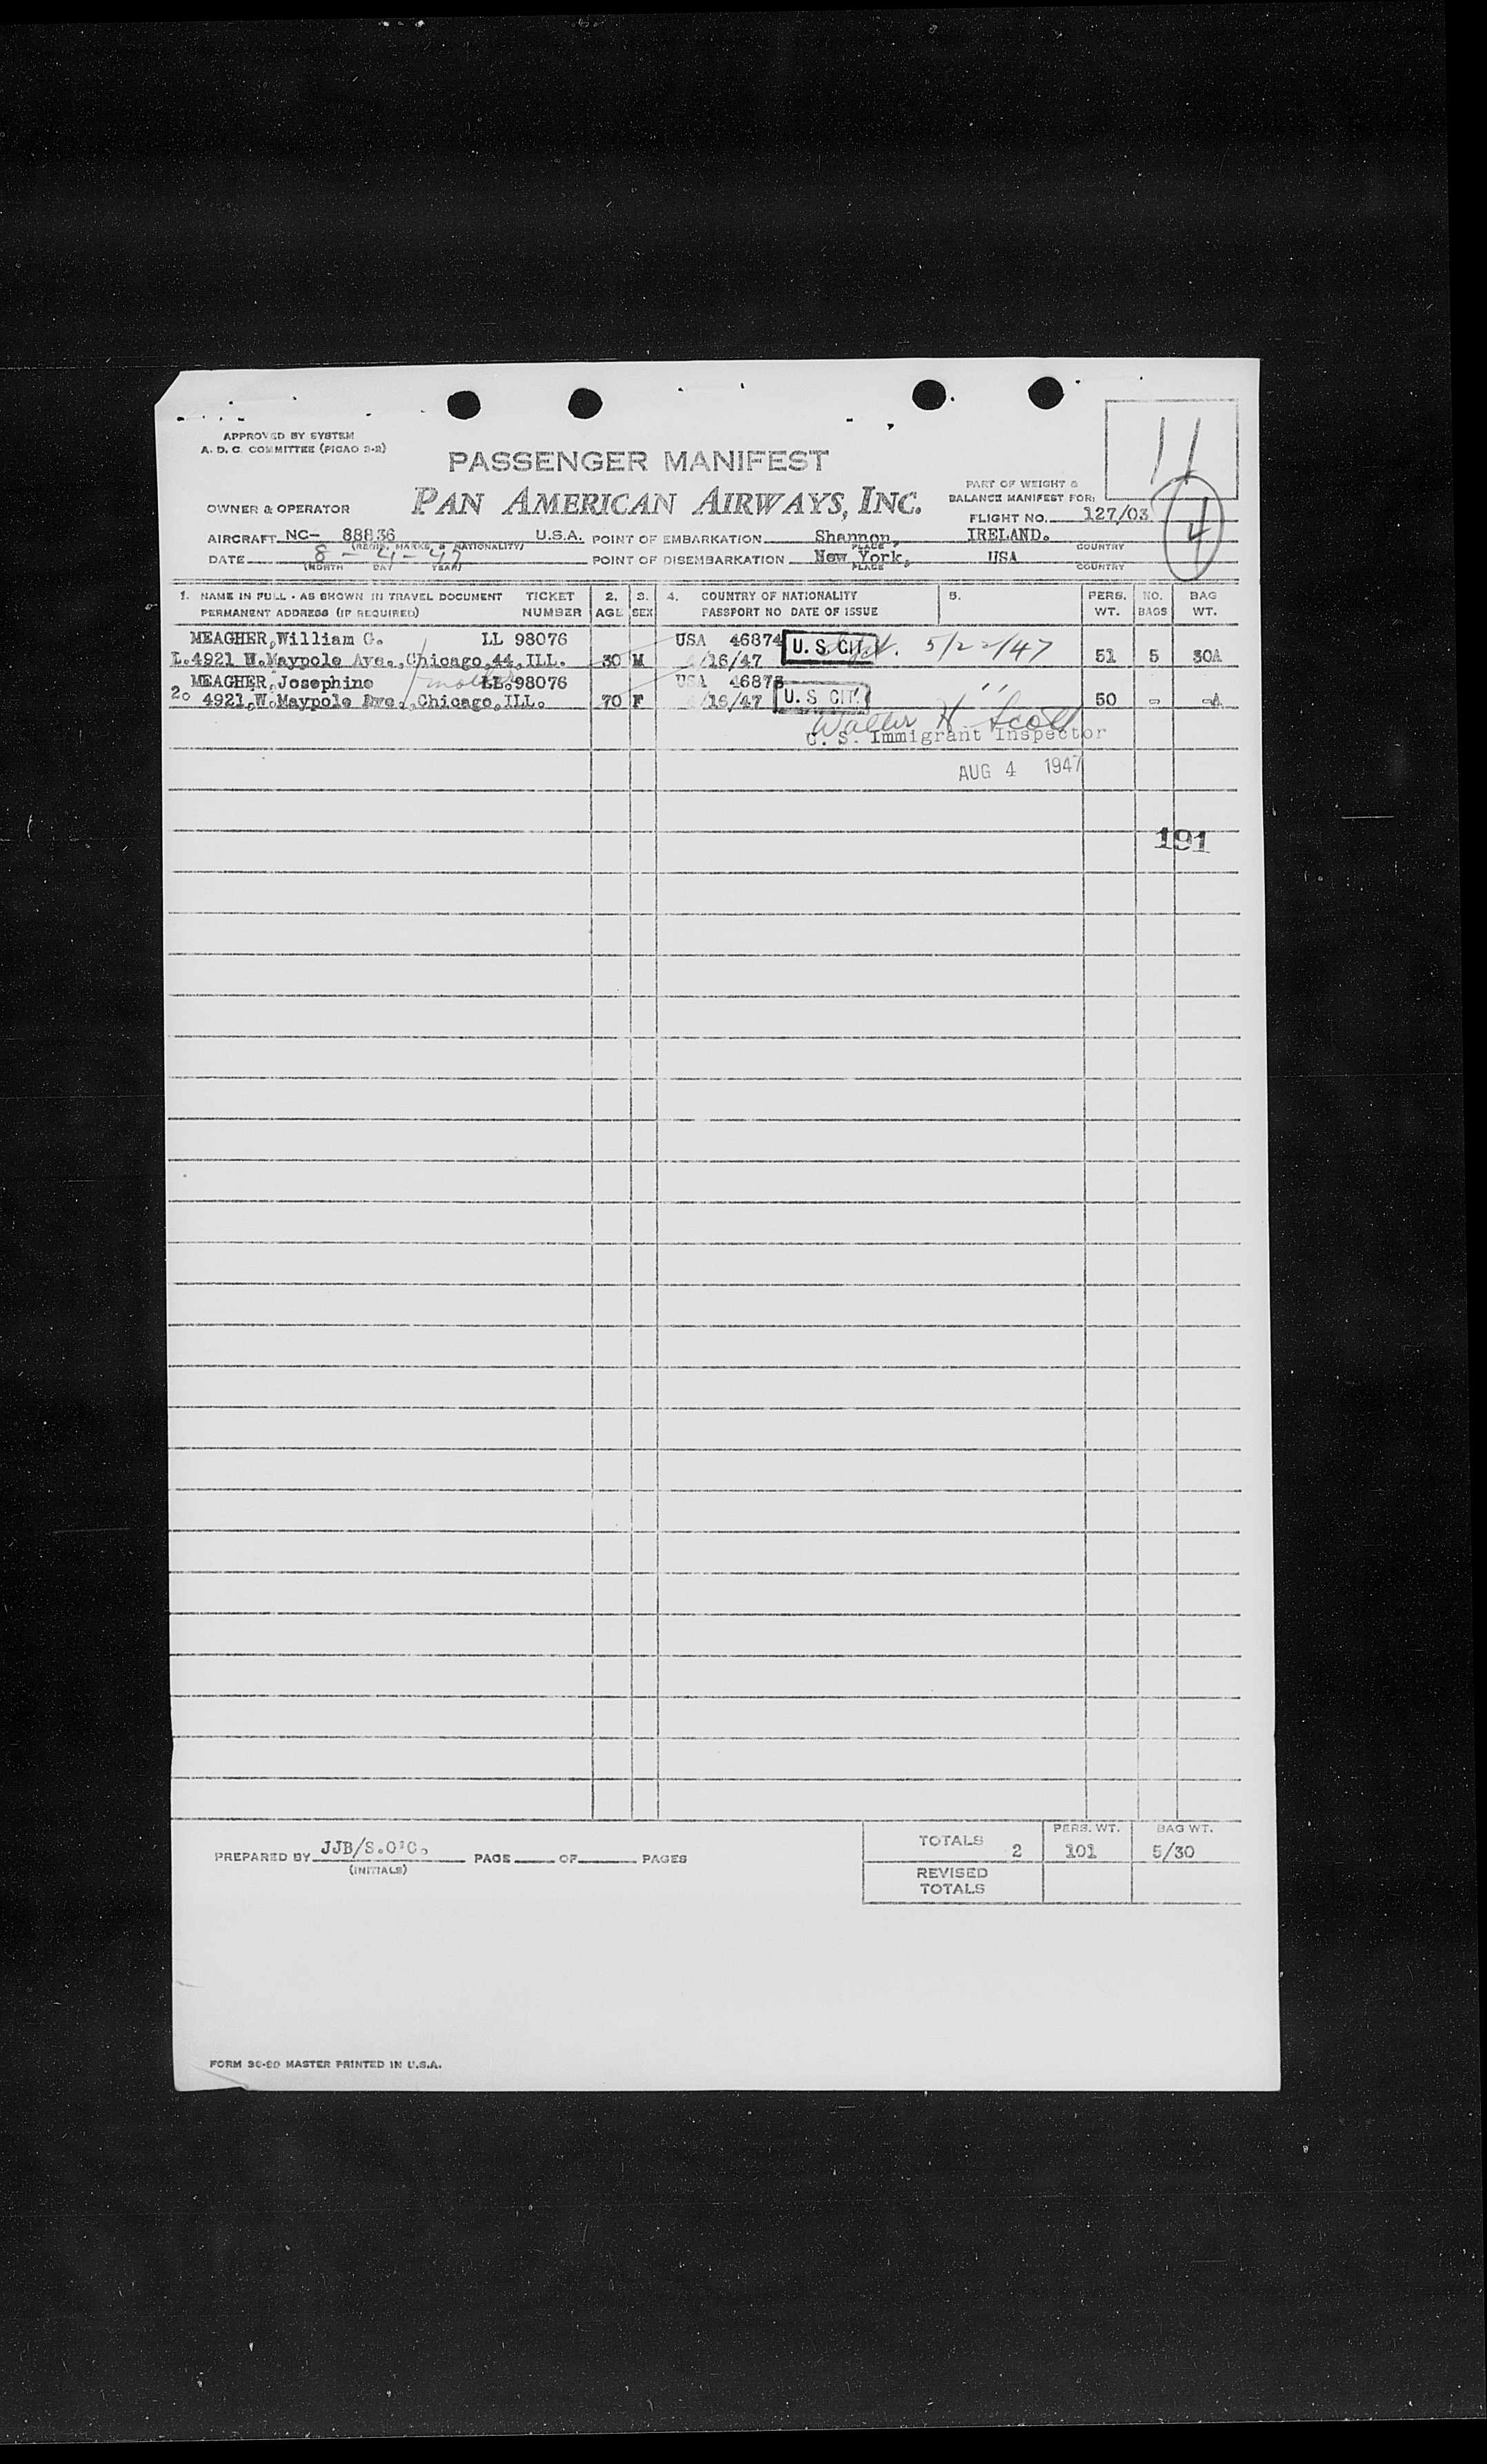 APPROVED BY SYSTEM
A. D. C. COMMITTEE (PICAO 3-2)
11
PASSENGER MANIFEST
PAN AMERICAN AIRWAYS, INC.
PART OF WEIGHT &
BALANCE MANIFEST FOR:
OWNER & OPERATOR
FLIGHT NO. 127/03
4
AIRCRAFT NC- 88836 U.S.A. POINT OF EMBARKATION Shannon, IRELAND.
(REGIS. MARKS & NATIONALITY) PLACE COUNTRY
DATE 8-4-47 POINT OF DISEMBARKATION New York, USA
(MONTH DAY YEAR) PLACE COUNTRY
1. NAME IN FULL - AS SHOWN IN TRAVEL DOCUMENT TICKET 2. 3. 4. COUNTRY OF NATIONALITY 5. PERS. NO. BAG
PERMANENT ADDRESS (IF REQUIRED) NUMBER AGE SEX PASSPORT NO DATE OF ISSUE WT. BAGS WT.
MEAGHER, William G. LL 98076 USA 46874 U. S. CIT. 5/22/47
4921 W.Maypole Ave., Chicago, 44, ILL. 30 M /16/47 51 5 30A
MEAGHER, Josephine mother LL.98076 USA 46875 U. S. CIT. "
2. 4921,W.Maypole Ave., Chicago, ILL. 70 F /16/47 50 - -A
Walter H Scott
U. S. Immigrant Inspector
AUG 4 1947
191
PREPARED BY JJB/S.O'C. PAGE OF PAGES
(INITIALS)
PERS. WT. BAG WT.
TOTALS 2 101 5/30
REVISED
TOTALS
FORM 36-80 MASTER PRINTED IN U.S.A.